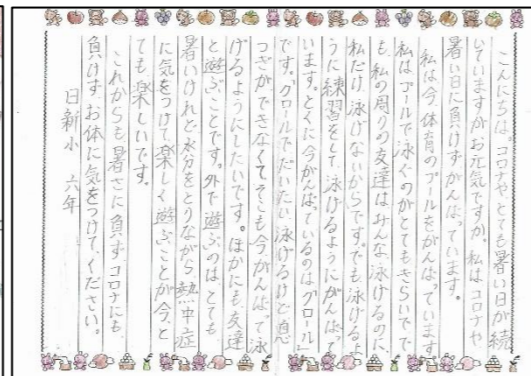 こんにちは。コロナやとても暑い日が続
いていますがお元気ですか。私はコロナや
暑い日に負けずがんばっています。
私は今、体育のプールをがんばっています
私はプールで泳ぐのがとてもきらいでで
も、私の周りの友達はみんな泳げるのに、
私だけ、泳げないからです。でも、泳げるよ
うに練習をして、泳げるようにがんばって
います。とくに今がんばているのはクロール
です。クロールでだいたい泳げるけど息
つぎができなくてそこも今がんばって泳
げるようにしたいです。ほかにも、友達
と遊ぶことです。外で遊ぶのはとても
暑いけれど水分をとりながら、熱中症
に気をつけて楽しく遊ぶことが今、と
ても楽しいです。
これからも暑さに負けずコロナにも
負けず、お体に気をつけて、ください。
日新小 六年